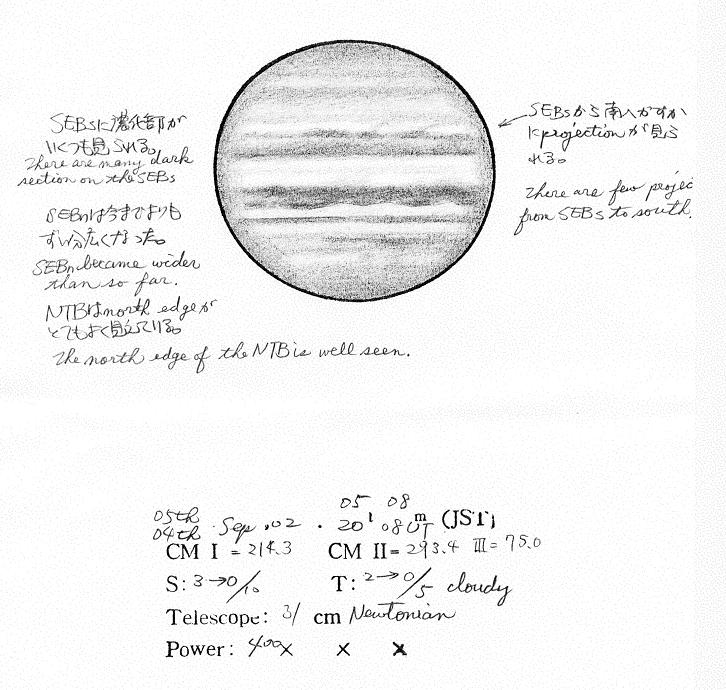 SEBsに濃化部が
いくつも見られる。
There are many dark
section on the SEBs
SEBnは今までよりも
ずい分広くなった。
SEBn became wider
than so far.
NTBはnorth edgeが
とてもよく見えている。
The north edge of the NTB is well seen.
SEBsから南へかすか
にprojectionが見ら
れる。
There are few projec
from SEBs to south.
05th 05 08
04th Sep. ,02 . 20 08 m UT (JST)
CM I = 214.3 CM II = 293.4 III = 75.0
S: 3→0/10 T: 2→0/5 cloudy
Telescope: 31 cm Newtonian
Power: 400x x x